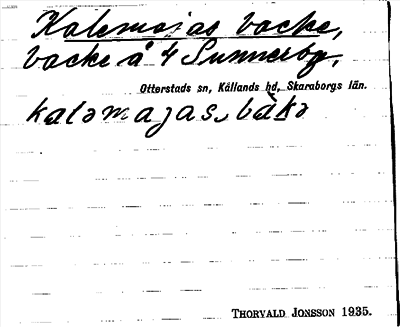 Kalemajas backe,
backe å 4 Sunnerby,
Otterstads sn, Kållands hd, Skaraborgs län.
kaləmajas bàkə
THORVALD JONSSON 1935.